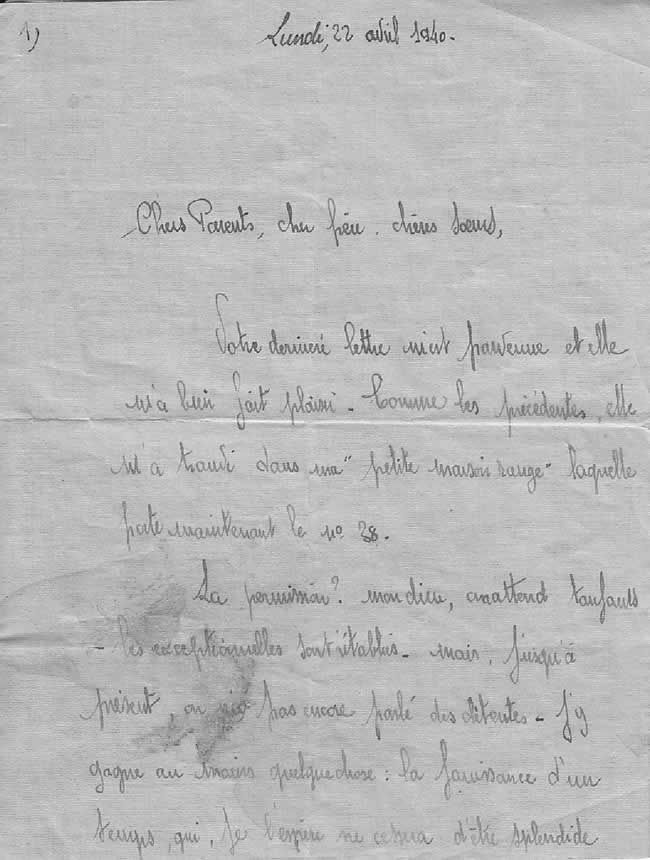 1)
Lundi, 22 avril 1940.
Chers Parents, cher frère. chères sœurs,
Votre dernière lettre m'est parvenue et elle
m'a bien fait plaisir - Comme les précédentes, elle
m'a dans ma "petite maison rouge" laquelle
porte maintenant le no 38.
La permission? mon dieu, on attend toujours
- les exceptionnelles sont rétablies - mais, jusqu'à
présent, on n'a pas encore parlé des détentes - J'y
gagne au moins quelque chose : la jouissance d'un
temps, qui, je l'espère ne cessera d'être splendide